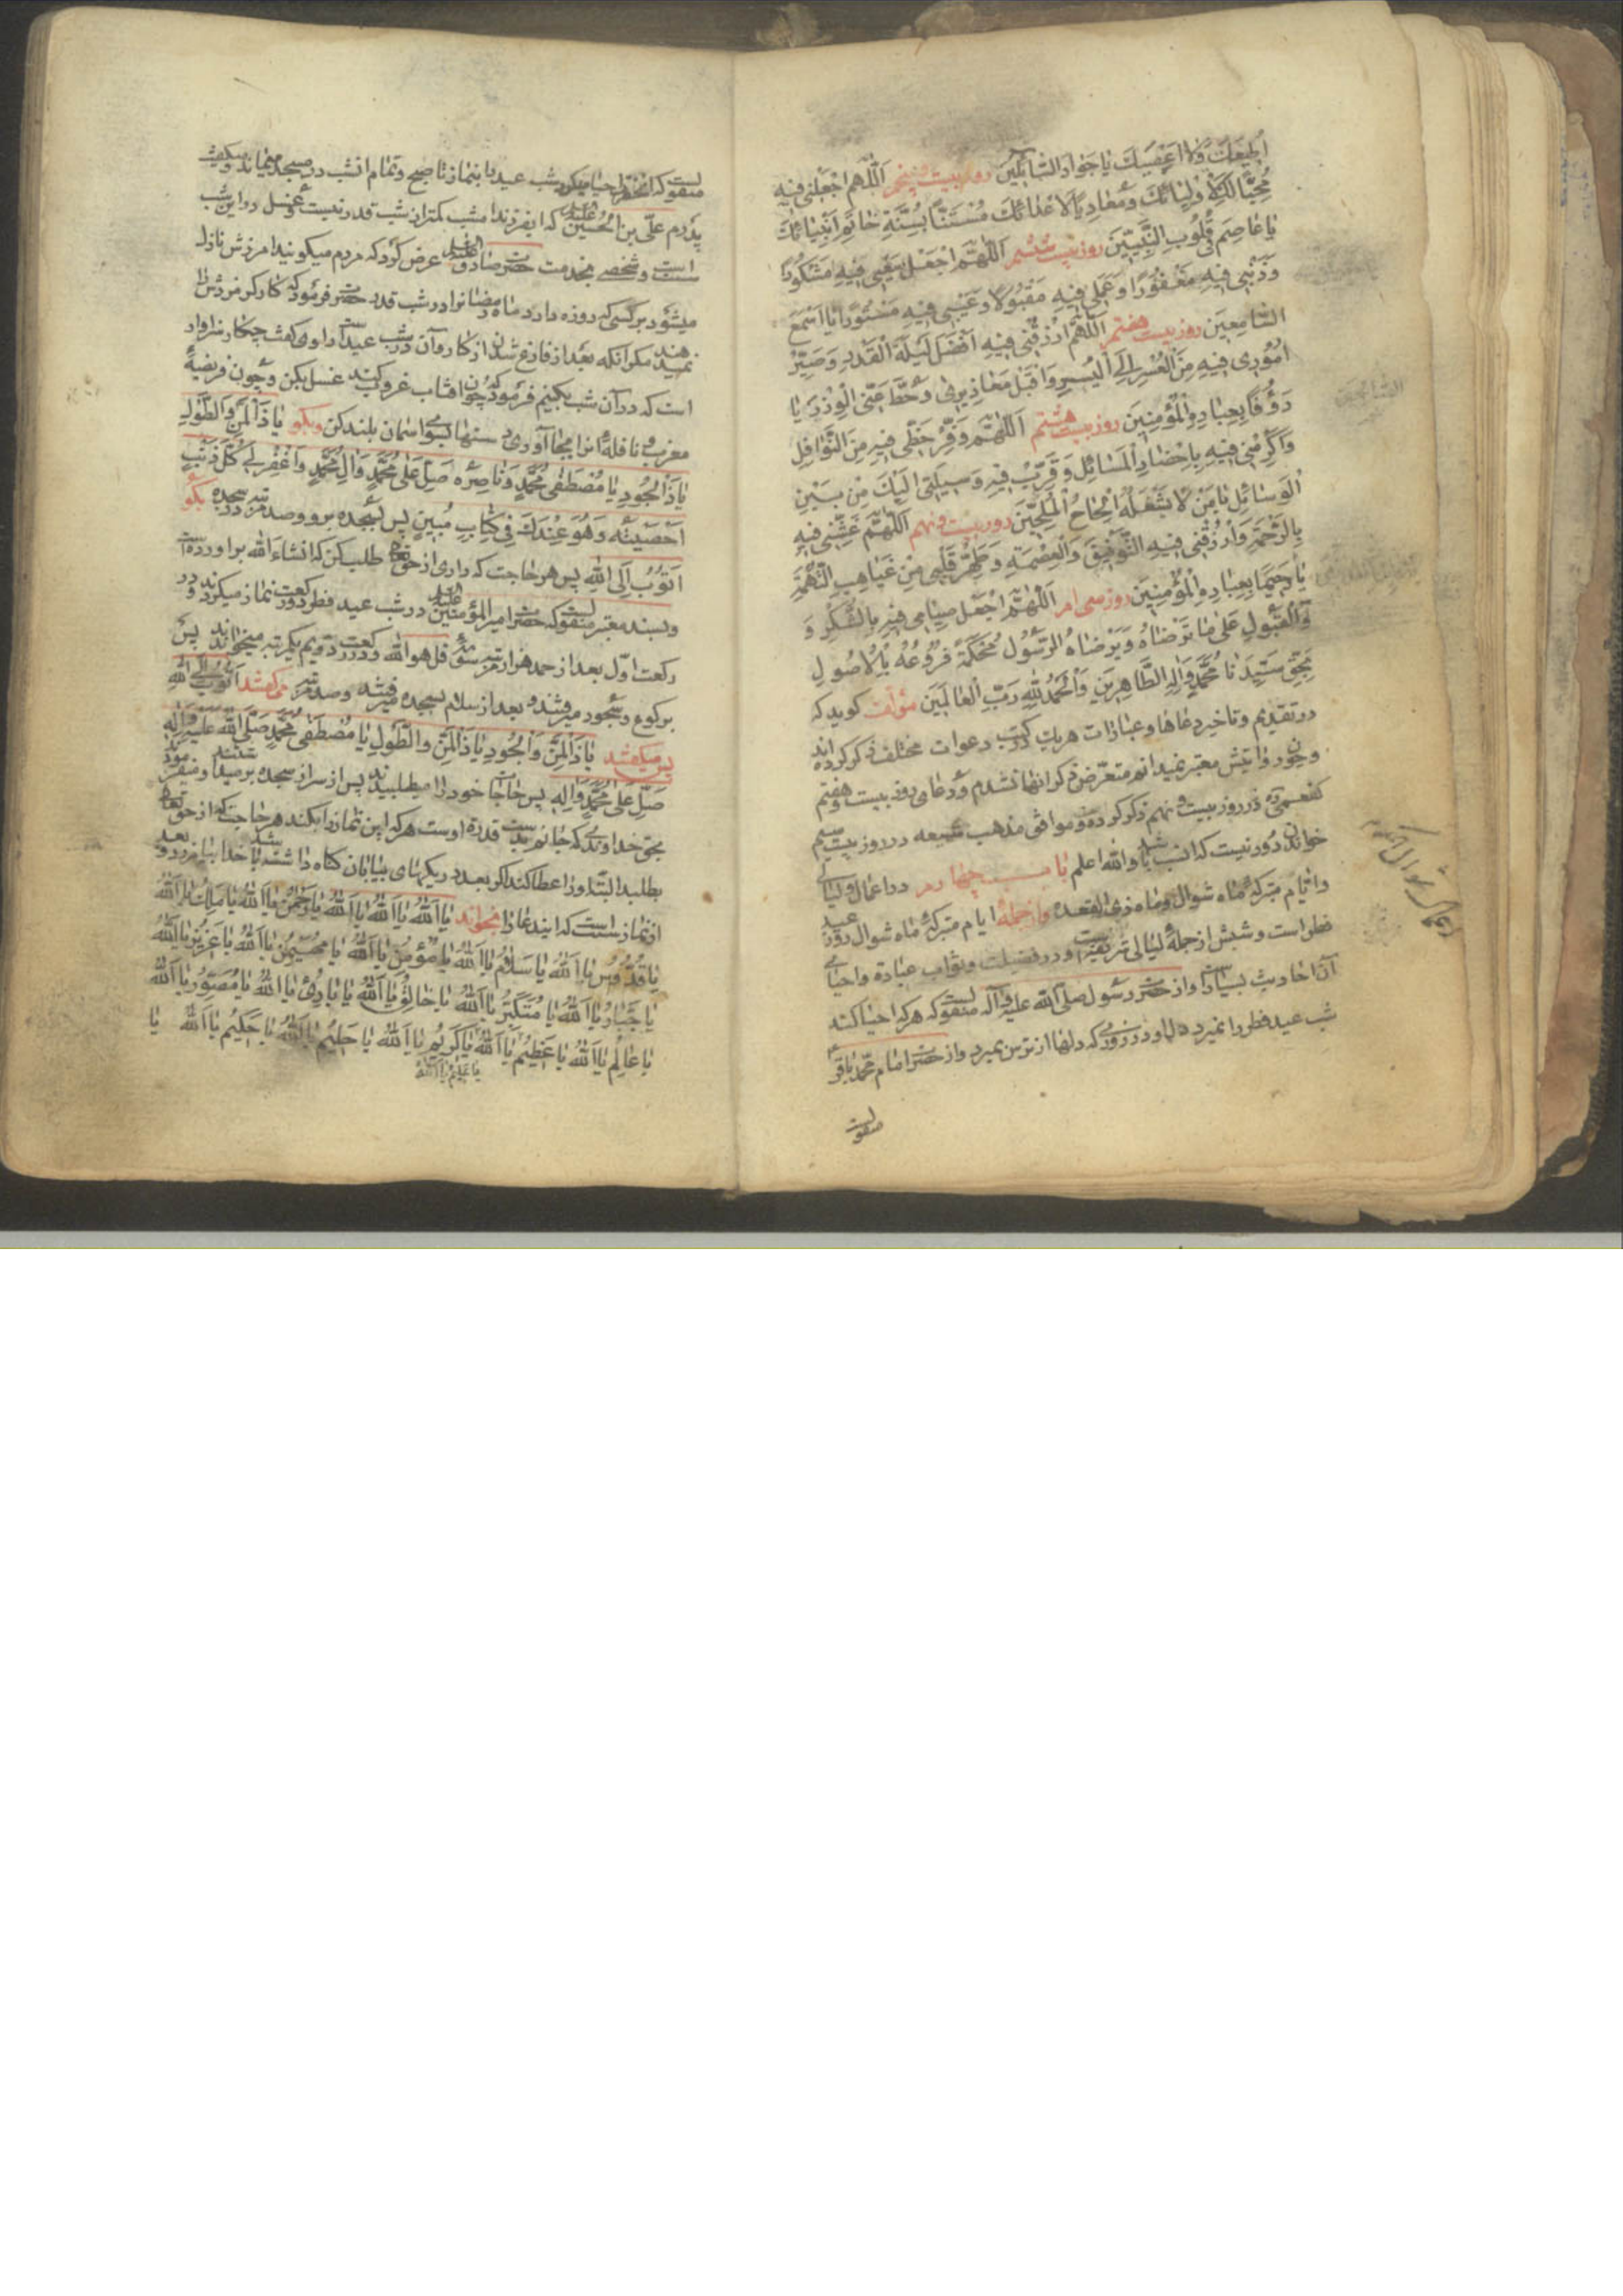 اُطیعَكَ وَلا اَعْصیكَ یا جَوادَ السّائِلینَ روز بیست پنجم اَللّهُمَّ اجْعَلْنی فیهِ
مُحِبًّا لِاَوْلِیائِكَ وَمُعادِیًا لِاَعْدائِكَ مُسْتَنًّا بِسُنَّةِ خاتَمِ اَنْبِیائِكَ
یا عاصِمَ قُلُوبِ النَّبِیّینَ روز بیست ششم اَللّهُمَّ اجْعَلْ سَعْیی فیهِ مَشْكُورًا
وَذَنْبی فیهِ مَغْفُورًا وَعَمَلی فیهِ مَقْبُولًا وَعَیْبی فیهِ مَسْتُورًا یا اَسْمَعَ
السّامِعینَ روز بیست هفتم اَللّهُمَّ ارْزُقْنی فیهِ اَفْضَلَ لَیْلَةِ الْقَدْرِ وَصَیِّرْ
اُمُوری فیهِ مِنَ الْعُسْرِ اِلَی الْیُسْرِ وَاقْبَلْ مَعاذیری وَحُطَّ عَنِّی الْوِزْرَ یا
رَؤُفًا بِعِبادِهِ الْمُؤْمِنینَ روز بیست هشتم اَللّهُمَّ وَفِّرْ حَظّی فیهِ مِنَ النَّوافِلِ
وَاَكْرِمْنی فیهِ بِاِحْضارِ الْمَسائِلِ وَقَرِّبْ فیهِ وَسیلَتی اِلَیْكَ مِنْ بَیْنِ
الْوَسائِلِ یا مَنْ لا یَشْغَلُهُ اِلْحاحُ الْمُلِحّینَ روز بیست و نهم اَللّهُمَّ غَشِّنی فیهِ
بِالرَّحْمَةِ وَارْزُقْنی فیهِ التَّوْفیقَ وَالْعِصْمَةَ وَطَهِّرْ قَلْبی مِنْ غَیاهِبِ التُّهْمَةِ
یا رَحیمًا بِعِبادِهِ الْمُؤْمِنینَ روز سی ام اَللّهُمَّ اجْعَلْ صِیامی فیهِ بِالشُّكْرِ وَ
وَالْقَبُولِ عَلی ما تَرْضاهُ وَیَرْضاهُ الرَّسُولُ مُحْكَمَةً فُرُوعُهُ بِالْاُصُولِ
بِحَقِّ سَیِّدِنا مُحَمَّدٍ وَالِهِ الطّاهِرینَ وَالْحَمْدُ لِلّهِ رَبِّ الْعالَمینَ مؤلف کوید که
در تقدیم و تاخیر دعاها و عبارات هر یك در کتب دعوات مختلف ذکر کرده اند
و چون روایتش معتبر نمیدانم متعرض ذکر انها نشدم و دعای روز بیست و هفتم
کفعمی در روز بیست و نهم ذکر کرده و موافق مذهب شیعه در روز بیست سیم
خواندن دور نیست که انسب باشد والله اعلم باب چهارم در اعمال و لیالی
و ایام متبرکه ماه شوال و ماه ذی القعده و از جمله ایام متبرکه ماه شوال روز عید
فطر است و شبش از جمله لیالی شریفه است و در فضیلت و ثواب عبادة و احیای
آن احادیث بسیار است و از حضرت رسول صلی الله علیه و آله منقولست که هر که احیا کند
شب عید فطر را نمیرد دل او در روزی که دلها از ترس بمیرد و از حضرت امام محمد باقر
منقولست
اعمال شوال
منقولست که انحضرت احیا میکرد شب عید را بنماز تا صبح و تمام انشب در مسجد میماند و میکفت
پدرم علی بن الحسین علیه السلام که ایفرزند امشب کمتر از شب قدر نیست و غسل در این شب
سنت است و شخصی بخدمت حضرت صادق علیه السلام عرض کرد که مردم میکویند امرزش نازل
میشود بر کسی که روزه دارد ماه رمضانرا در شب قدر حضرت فرمود که کارکر مزدش را
نمیدهند مکر انکه بعد از فارغ شدن از کار و آن در شب عید است راوی کفت چکار سزاوار
است که در آن شب بکنیم فرمود که چون افتاب غروب کند غسل بکن و چون فریضهٔ
مغرب و نافلهٔ انرا بجا آوری دستها بسوی اسمان بلند کن و بکو یا ذَا الْمَنِّ وَالطَّوْلِ
یا ذَا الْجُودِ یا مُصْطَفِیَ مُحَمَّدٍ وَناصِرَهُ صَلِّ عَلی مُحَمَّدٍ وَالِ مُحَمَّدٍ وَاغْفِرْ لی كُلَّ ذَنْبٍ
اَحْصَیْتَهُ وَهُوَ عِنْدَكَ فی كِتابٍ مُبینٍ پس بسجده برو و صد مرتبه در سجده بکو
اَتُوبُ اِلَی اللهِ پس هر حاجت که داری از حق تعالی طلب کن که انشاءالله براورده است
و بسند معتبر منقولست که حضرت امیر المؤمنین علیه السلام در شب عید فطر دو رکعت نماز میکردند در
رکعت اول بعد از حمد هزار مرتبه سورهٔ قل هو الله و در رکعت دویم یکمرتبه میخواندند پس
برکوع و سجود میرفتند و بعد از سلام بسجده میرفتند و صد مرتبه میکفتند اَتُوبُ اِلَی اللهِ
پس میکفتند یا ذَا الْمَنِّ وَالْجُودِ یا ذَا الْمَنِّ وَالطَّوْلِ یا مُصْطَفِیَ مُحَمَّدٍ صَلَّی اللهُ عَلَیْهِ وَالِهِ
صَلِّ عَلی مُحَمَّدٍ وَالِهِ پس حاجات خود را میطلبیدند پس از سر از سجده برمیداشتند و میفرمود
بحق خداوندی که جانم بید قدرة اوست هر که این نماز را بکند هر حاجت که از حق تعالی
بطلبد البته او را عطا کند اکر بعدد ریکهای بیابان کناه داشته باشد خدا بیامرزد و بعد
از نماز سنت است که ایندعا را بخواند یا اَللهُ یا اَللهُ یا اَللهُ یا رَحْمنُ یا اَللهُ یا مَلِكُ یا اَللهُ
یا قُدُّوسُ یا اَللهُ یا سَلامُ یا اَللهُ یا مُؤْمِنُ یا اَللهُ یا مُهَیْمِنُ یا اَللهُ یا عَزیزُ یا اَللهُ
یا جَبّارُ یا اَللهُ یا مُتَكَبِّرُ یا اَللهُ یا خالِقُ یا اَللهُ یا بارِئُ یا اَللهُ یا مُصَوِّرُ یا اَللهُ
یا عالِمُ یا اَللهُ یا عَظیمُ یا اَللهُ یا كَریمُ یا اَللهُ یا حَلیمُ یا اَللهُ یا حَكیمُ یا اَللهُ یا
یا عَلیمُ یا اَللهُ